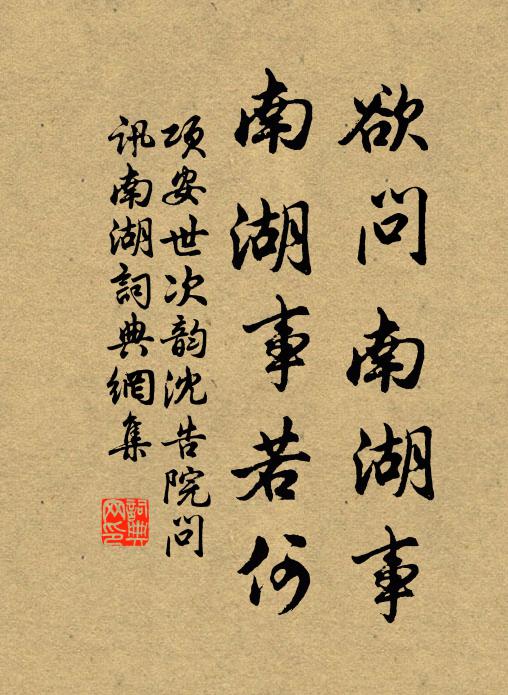 欲问南湖事
南湖事若何
项安世次韵沈告院问
讯南湖詞典網集
詞典
网印